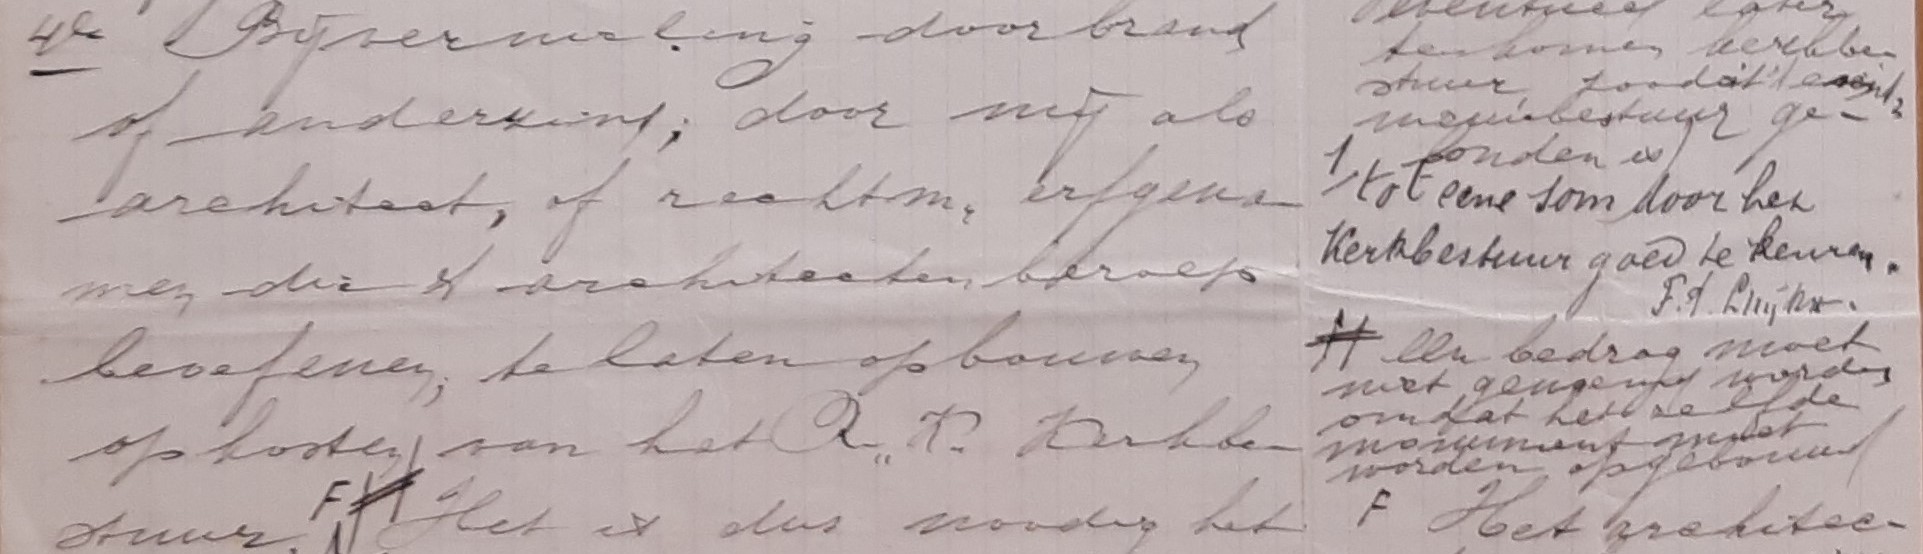 4de Bij vernieling door brand
of anderzins, door mij als
architect, of rechtm. erfgena-
men die 't architecten beroep
beoefenen, te laten opbouwen
op kosten van het R. K. Kerkbe-
stuur. F Het is dus noodig het
eventueel later
te komen kerkbe-
stuur, zoodat
meentebestuur ge-
bonden is
1 tot eene som door het
Kerkbestuur goed te keuren.
Een bedrag moet
niet genoemd worden
omdat het zelfde
monument moet
worden opgebouwd
F Het architec-